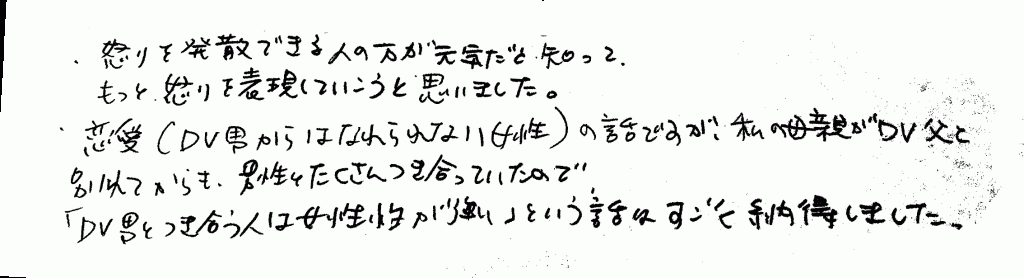 ・怒りを発散できる人の方が元気だと知って、
もっと怒りを表現していこうと思いました。
・恋愛(DV男からはなれられない女性)の話ですが、私の母親がDV父と
別れてからも、男性とたくさんつき合っていたので
「DV男とつき合う人は女性性が強い」という話はすごく納得しました。